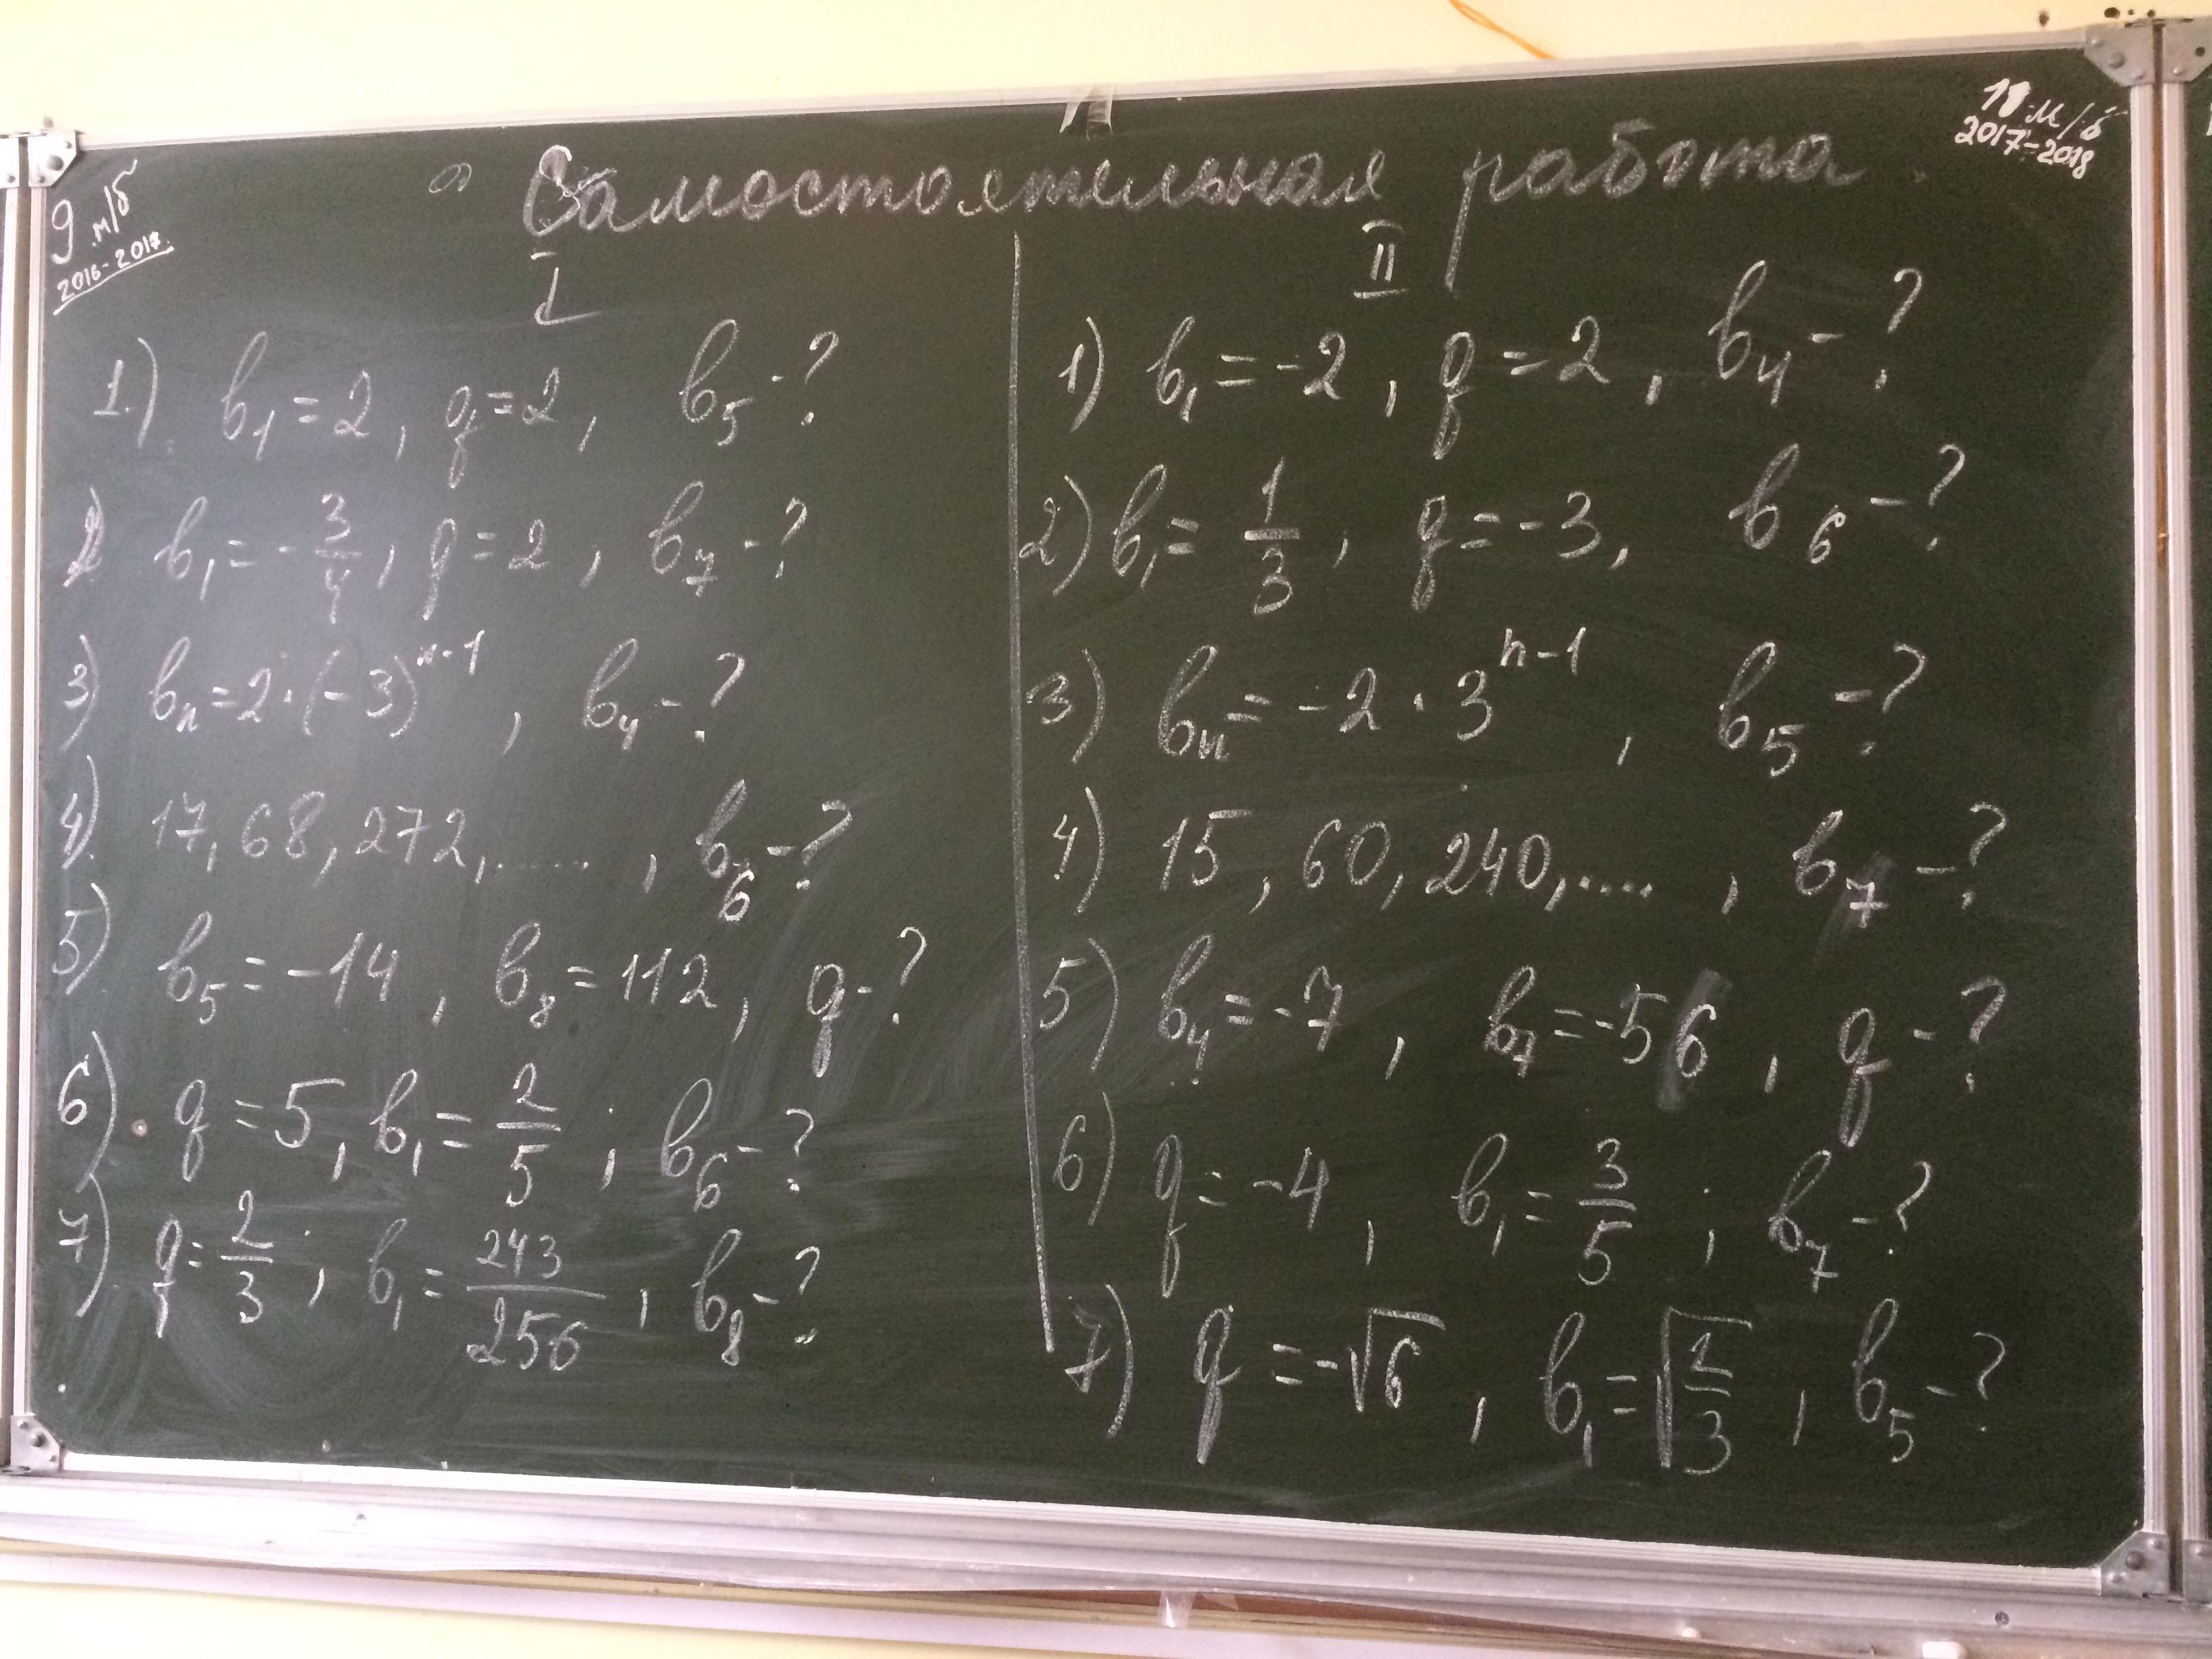 9 м/б
2016-2017.
11 м/б
2017-2018
Самостоятельная работа
I
1) b₁ = 2, q = 2, b₅ - ?
2) b₁ = - 3/4, q = 2, b₇ - ?
3) bₙ = 2 · (-3)ⁿ⁻¹, b₄ - ?
4) 17, 68, 272, ......, b₆ - ?
5) b₅ = -14, b₈ = 112, q - ?
6) q = 5, b₁ = 2/5; b₆ - ?
7) q = 2/3; b₁ = 243/256, b₈ - ?
II
1) b₁ = -2, q = 2, b₄ - ?
2) b₁ = 1/3, q = -3, b₆ - ?
3) bₙ = -2 · 3ⁿ⁻¹, b₅ - ?
4) 15, 60, 240, ...., b₇ - ?
5) b₄ = -7, b₇ = -56, q - ?
6) q = -4, b₁ = 3/5; b₇ - ?
7) q = -√6, b₁ = √(2/3), b₅ - ?